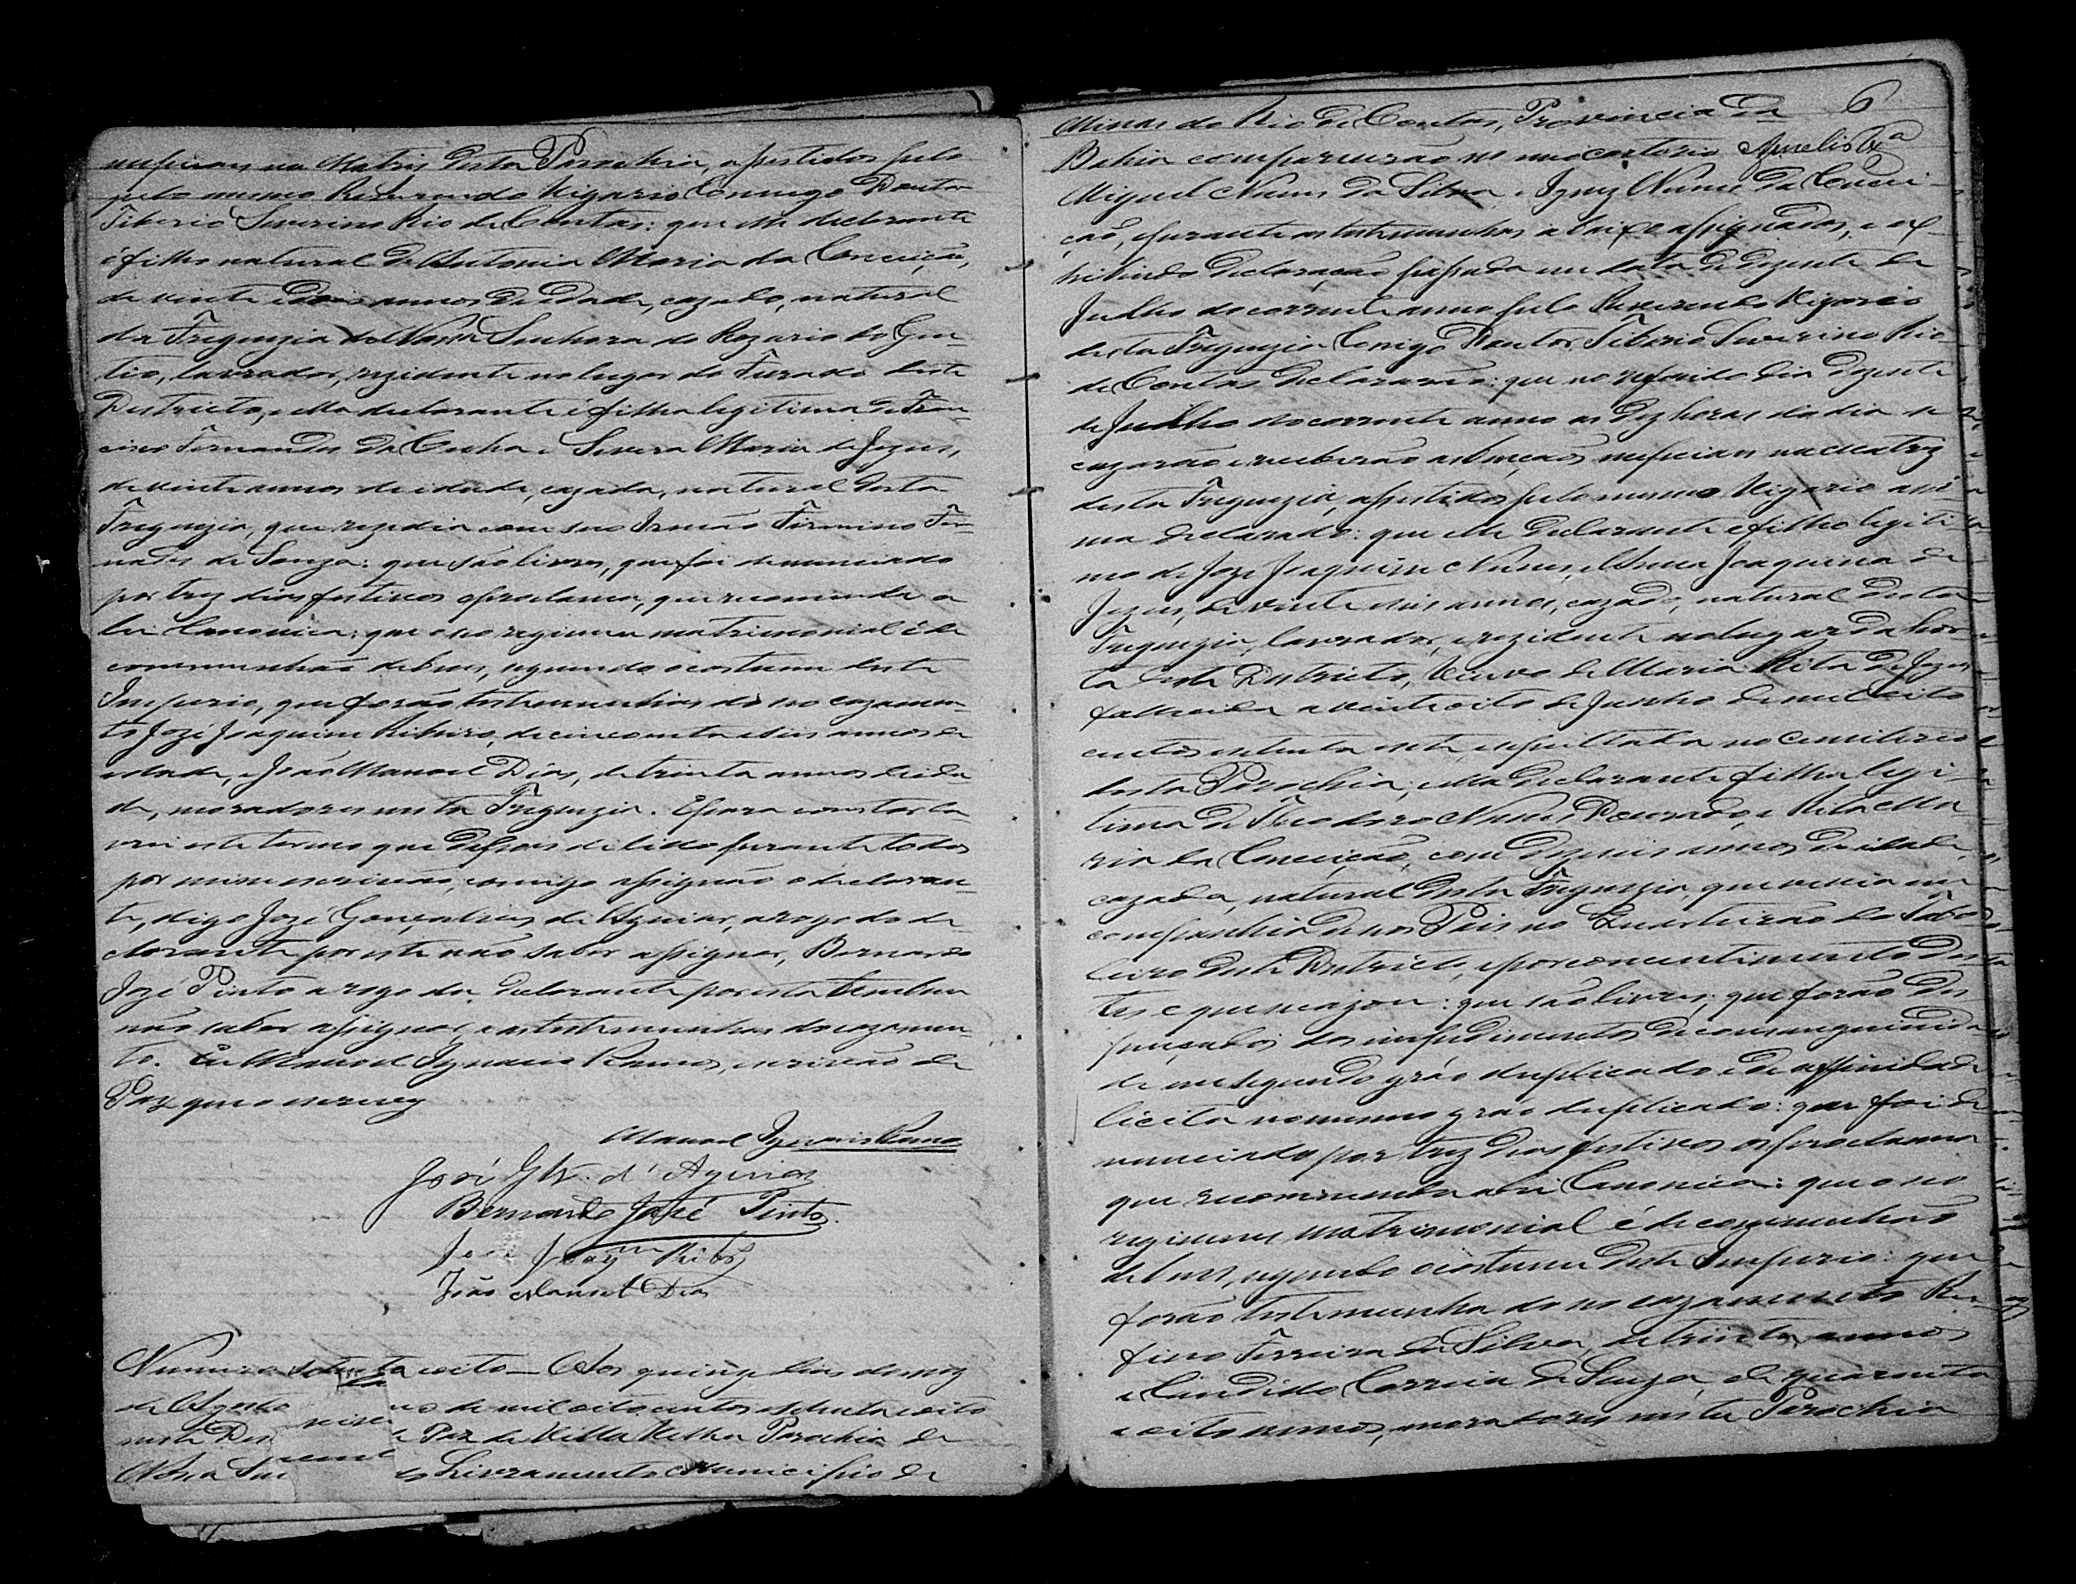 nupciaes na Matris desta Parochia, assestidos pelo
pelo mesmo Reverendo Vigario Conego Doutor
Tiberio Severino Rio de Contas: que elle declarante
é filho natural de Antonia Maria da Conceição,
de vinte e dois annos de idade, cazado, natural
da Freguezia de Nossa Senhora do Rozario do Gen-
tio, lavrador, rezidente no lugar do Furado deste
Destricto, e ella declarante é filha legitima de Fran-
cisco Fernandes da Cunha e Severa Maria de Jezus,
de vinte annos de idade, cazada, natural desta
Freguezia, que rezedia com seo Irmão Firmino Fer-
nandes de Souza: que são livres, que foi denunciado
por trez dias festivos o proclama, que recomenda a
lei Canonica: que o seo regimen matrimonial é de
communhão de bens, segundo o costume deste
Imperio, que forão testemunhas do seo cazamen-
to Jozé Joaquim Ribeiro, de cincoenta e seis annos de
idade, e João Manoel Dias, de trinta annos de ida
de, moradores nesta Freguezia. E para constar la
vrei este termo que depois de lido perante todos
por mim escrivão, comigo assignão o declaran-
te, digo Jozé Gonçalves de Aguiar, a rogo do de
clarante por este não saber assignar, Bernardo
Jozé Pinto a rogo da declarante por esta tambem
não saber assignar, e as testemunhas do cazamen-
to. Eu Manoel Ignacio Ramos, escrivão de
Paz que o escrevy
Manoel Ignacio Ramos
José Glz. d' Aguiar
Bernardo José Pinto
José Joaqm Ribro
João Manoel Dias
Numero setenta e oito — Aos quinze dias do mez
de Agosto de mil oito centos e oitenta e oito
neste Des Paz de Villa Velha Parochia de
Nossa Sen do Livramento Municipio de
Minas do Rio de Contas, Provincia da 6
Bahia comparecerão no meo cartorio
Miguel Nunes da Silva e Ignez Nunes da Concei-
ção, e perante as testemunhas abaixo assignados, e ex-
hibindo declaração passada em data de dezesete de
Julho do corrente anno pelo Reverendo Vigario
desta Freguezia Conego Doutor Tiberio Severino Rio
de Contas declararão: que no referido dia dezesete
de Julho do corrente anno as dez horas do dia se
cazarão e receberão as bençãos nupciaes na Matriz
desta Freguezia, assestidos pelo mesmo Vigario aci-
ma declarado: que elle declarante é filho legiti
mo de Joze Joaquim Nunes, e Anna Joaquina de
Jezus, de vinte e seis annos, cazado, natural desta
Freguezia, lavrador, e rezidente no lugar da hor
ta deste Districto, Viuvo de Maria Rita de Jezus
fallecida a vinte oito de Junho de mil oito
centos oitenta e sete e sepultada no Cemiterio
desta Parochia; e ella declarante filha legi-
tima de Theodoro Nunes Dourado, e Rita Ma-
ria da Conceição, com dezeseis annos de idade,
cazada, natural desta Freguezia, que vevia em
companhia de seos Pais no Quarteirão do Tabo
leiro deste Districto, e por concentimento des
tes é que se cazou: que são livres; que forão des
pençados dos impedimentos de consanguinida
de em segundo gráo duplicado e de affinidade
licita no mesmo gráo duplicado: que foi de
nunciado por trez dias festivos os proclama
que recommenda a lei Canonica: que o seo
regimem matrimonial é de communhão
de bens, segundo o costume deste Imperio: que
forão testemunha do seo cazamento Ru-
fino Ferreira da Silva, de trinta annos
e Candido Correia de Souza, de quarenta
e oito annos, moradores nesta Parochia